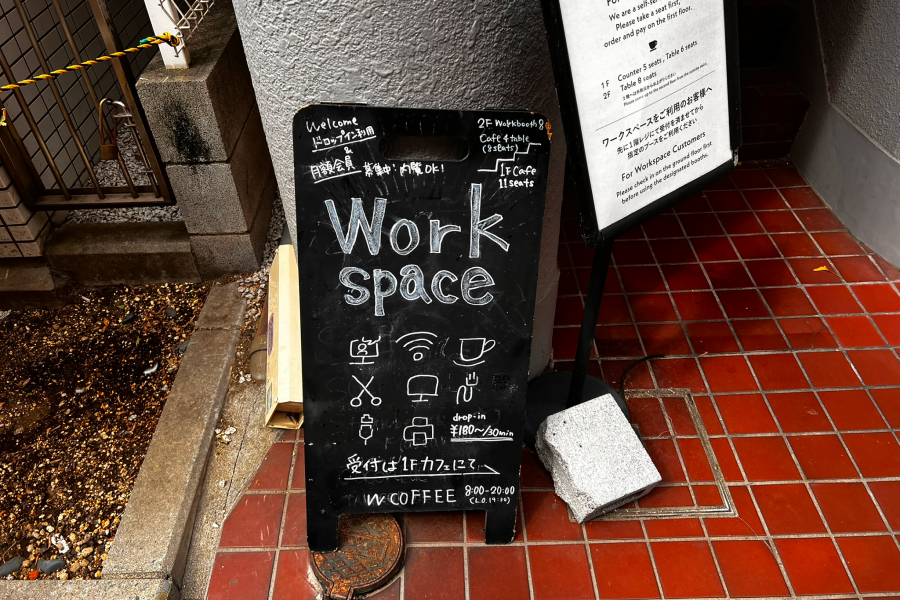 Welcome
ドロップイン利用
&
月額会員 募集中!内覧OK!
2F Workbooth 8
Cafe 4 table
(8seats)
1F Cafe
11 seats
Work
space
drop-in
¥180〜/30min
受付は1Fカフェにて、
W COFFEE 8:00-20:00
We are a self-
Please take a seat first,
order and pay on the first floor.
1F Counter 5 seats, Table 6 seats
2F Table 8 seats
ワークスペースをご利用のお客様へ
先に1階レジにて受付を済ませてから
指定のブースをご利用ください
For Workspace Customers
Please check in on the ground floor first
before using the designated booths.